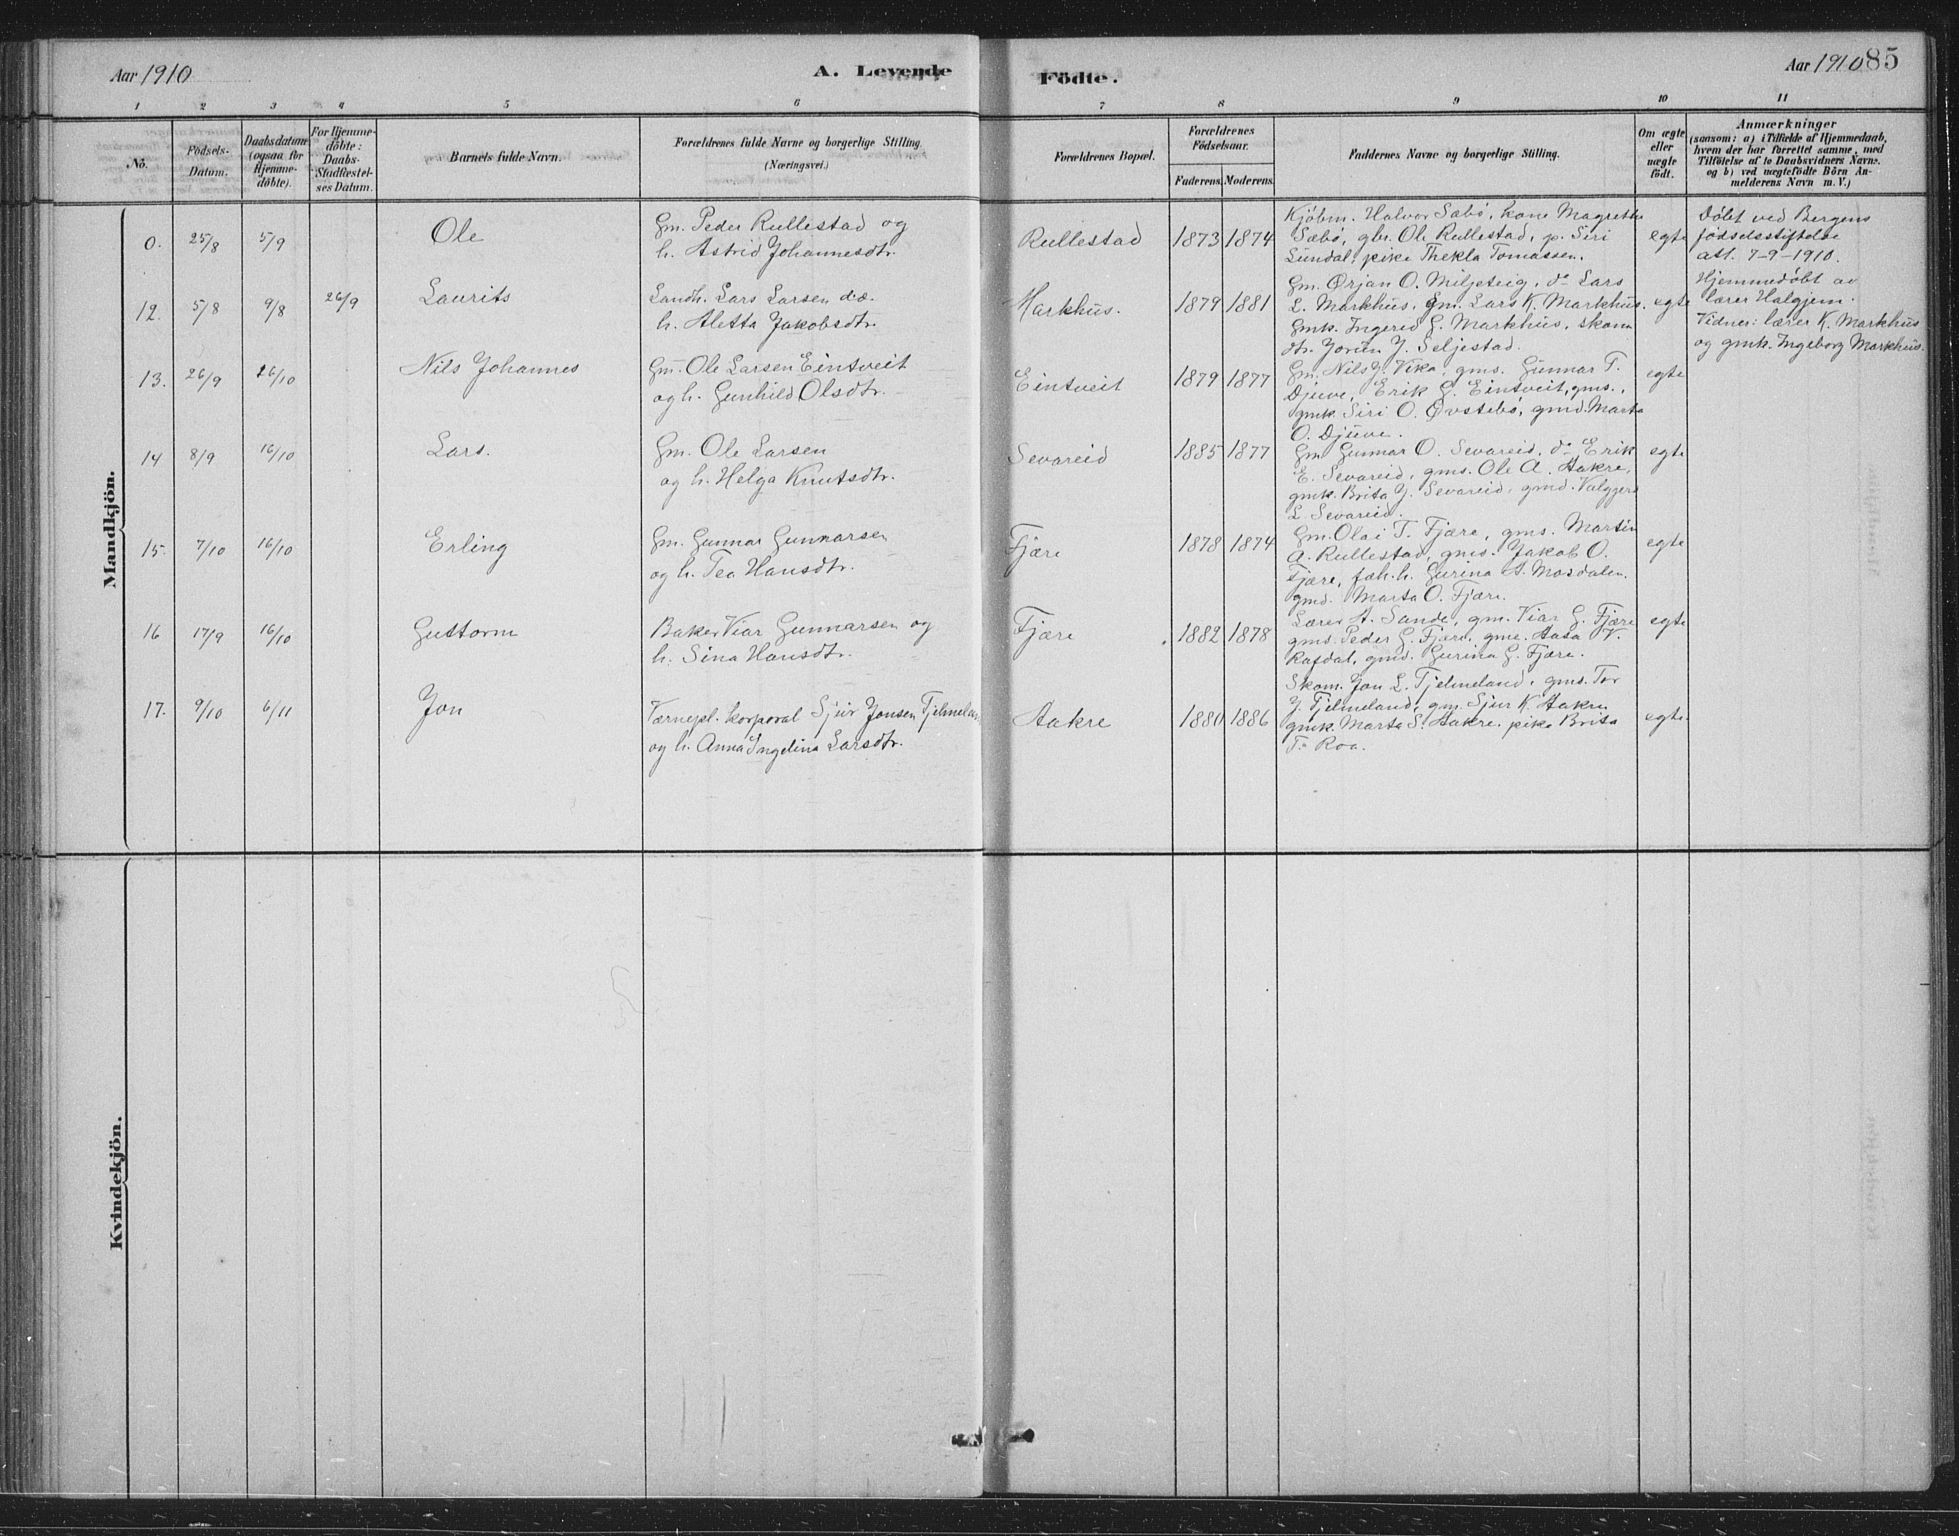 Aar 1910
A. Levende
Födte.
Aar 1910 85
1 2 3 4 5 6 7 8 9 10 11
No.
Födsels-
Datum.
Daabsdatum
(ogsaa for
Hjemme-
döbte).
For Hjemme-
döbte:
Daabs-
Stadfæstel-
ses Datum.
Barnets fulde Navn.
Forældrenes fulde Navne og borgerlige Stilling.
(Næringsvei.)
Forældrenes Bopæl.
Forældrenes
Födselsaar.
Faderens. Moderens.
Faddernes Navne og borgerlige Stilling.
Om ægte
eller
uægte
födt.
Anmærkninger
(saasom: a) i Tilfælde af Hjemmedaab,
hvem der har forrettet samme, med
Tilföielse af to Daabsvidners Navne.
og b) ved uægtefödte Börn An-
melderens Navn m. V.)
Mandkjön.
0. 25/8 5/9
Ole
Gm. Peder Rullestad og
h. Astrid Johannesdtr.
Rullestad
1873 1874
Kjøbm. Halvor Sæbö, kone Magrethe
Sæbö, gbr. Ole Rullestad, p. Siri
Lundal, pike Thekla Tomassen.
egte
Döbt ved Bergens
födselsstiftelse
att. 7-9-1910.
12. 5/8 9/8 26/9
Laurits
Landh. Lars Larsen
h. Aletta Jakobsdtr.
Markhus.
1879 1881
Gm. Ørjan O. Miljeteig, do Lars
L. Markhus, gm. Lars K. Markhus.
Gmk. Ingerid G. Markhus, skom
dtr. Jorun J. Seljestad.
egte
Hjemmedöbt av
lærer Halgjem.
Vidner: lærer K. Markhus
og gmk. Ingeborg Markhus.
13. 26/9 26/10
Nils Johannes
Gm. Ole Larsen Eintveit
og h. Gunhild Olsdtr.
Eintveit
1879 1877
Gm. Nils J. Vika, gms. Gunnar T.
Djuve, Erik G. Eintveit, gms.,
gmk. Siri O. Øvstebö, gmd. Marta
O. Djuve.
egte
14 8/9 16/10
Lars.
Gm. Ole Larsen
og h. Helga Knutsdtr.
Sevareid
1885 1877
Gm Gunnar O. Sevareid, do Erik
E. Sevareid, gms. Ole A. Aakre,
gmk. Brita J. Sevareid, gmd. Valgjerd
L. Sevareid.
egte
15. 7/10 16/10
Erling
Gm. Gunnar Gunnarsen
og h. Tea Hansdtr.
Fjære
1878 1874
Gm. Olai T. Fjære, gms. Martin
A. Rullestad, gms. Jakob O.
Fjære, Gurina A. Mosdalen,
gmd. Marta O. Fjære.
egte
16 17/9 16/10
Guttorm
Baker Viar Gunnarsen og
h. Sina Hansdtr.
Fjære
1882 1878
Lærer A. Sande, gm. Viar G. Fjære
gms. Peder G. Fjære, gme. Aasa V.
Rafdal, gmd. Gurina G. Fjære.
egte
17. 9/10 6/11
Jon
Værnepl. korporal Sjur Jonsen Tjelmeland
og h. Anna Ingelina Larsdtr.
Aakre
1880 1886
Skom. Jon L. Tjelmeland, gms. Tor
J. Tjelmeland, gm. Sjur K. Aakre
gmk. Marta S. Aakre, pike Brita
T. Roa.
egte
Kvindekjön.